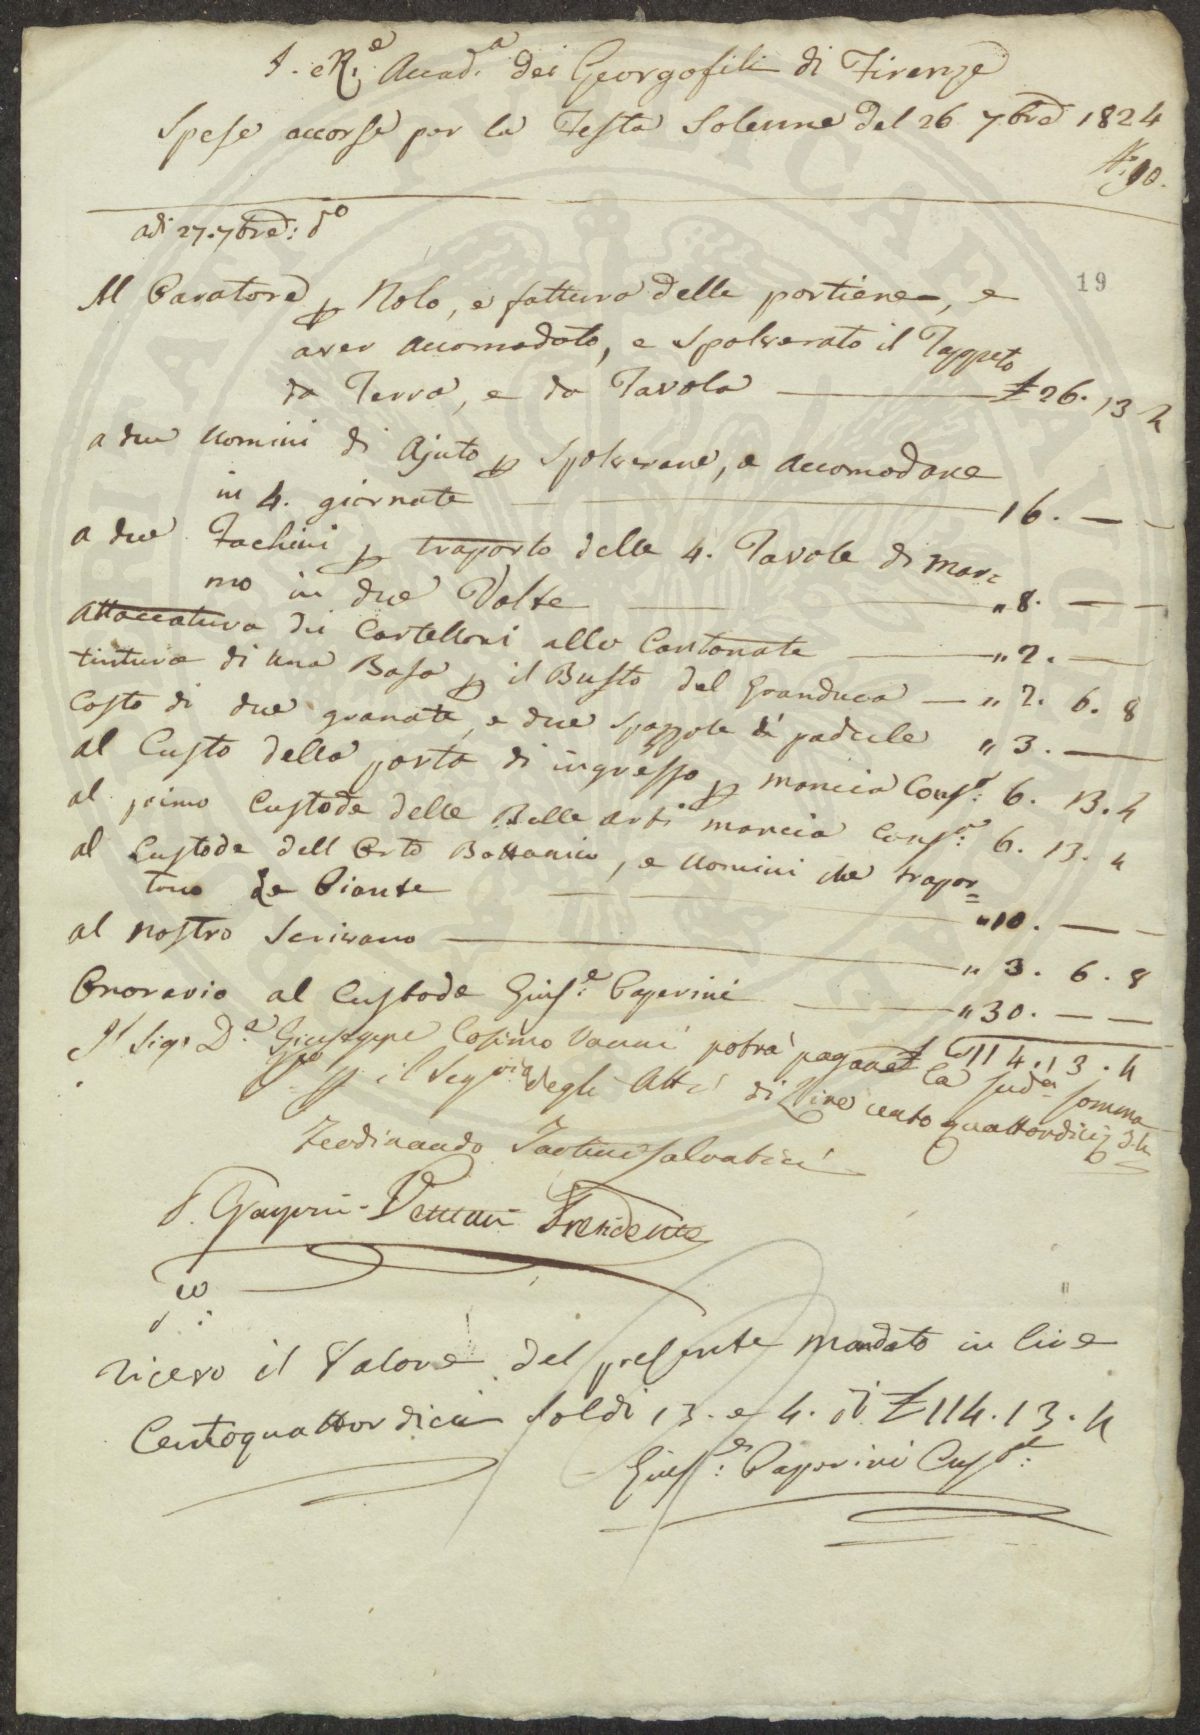 I. e R.e Accad.a dei Georgofili di Firenze
Spese accorse per la Festa Solenne del 26 7bre 1824
N. 90.
adi 27. 7bre: do
19
Al Paratore p Nolo, e fattura delle portiene, e
aver accomodato, e Spolverato il Tappeto
da Terra, e da Tavola £ 26. 13 4
a due Uomini di Ajuto p Spolverare, e accomodare
in 4. giornate 16. — —
a due Fachini p traporto delle 4. Tavole di mar=
mo in due Volte " 8. — —
Attaccatura dei Cartelloni alle Cantonate " 2. —
tintura di una Basa p il Busto del Granduca — " 2. 6. 8
Costo di due granate, e due Spazzole di padule " 3. —
al Custo della porta di ingresso p mancia Cons.a 6. 13. 4
al primo Custode delle Belle Arti mancia Cons.a: 6. 13. 4
al Custode dell Orto Bottanico, e Uomini che trapor=
tono Le Piante " 10. — —
al nostro Scrivano " 3. 6. 8
Onorario al Custode Gius.e Paperini " 30. — —
£ 114. 13. 4
Il Sig. D.e Giuseppe Cosimo Vanni potrà pagare la sud.a somma
p il Seg.rio degli Atti di Lire cento quattordici
Ferdinando Tartini Salvatici
P. Gazzeri Presidente
Ricevo il Valore del presente Mandato in lire
Centoquattordici soldi 13. e 4. di £ 114. 13. 4
Gius.e: Paperini Cus.e: